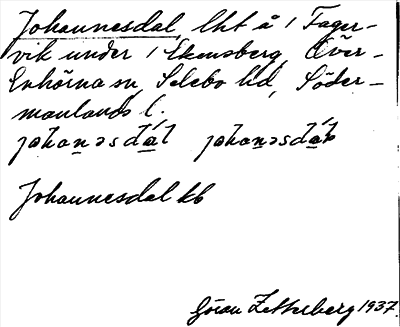 Johannesdal, lht å 1 Fager-
vik under 1 Ekensberg, Över-
Enhörna sn, Selebo hd, Söder-
manlands l.
johan̲əsdá̲l johan̲əsdá̲l
Johannesdal kb
Göran Zetterberg 1937.